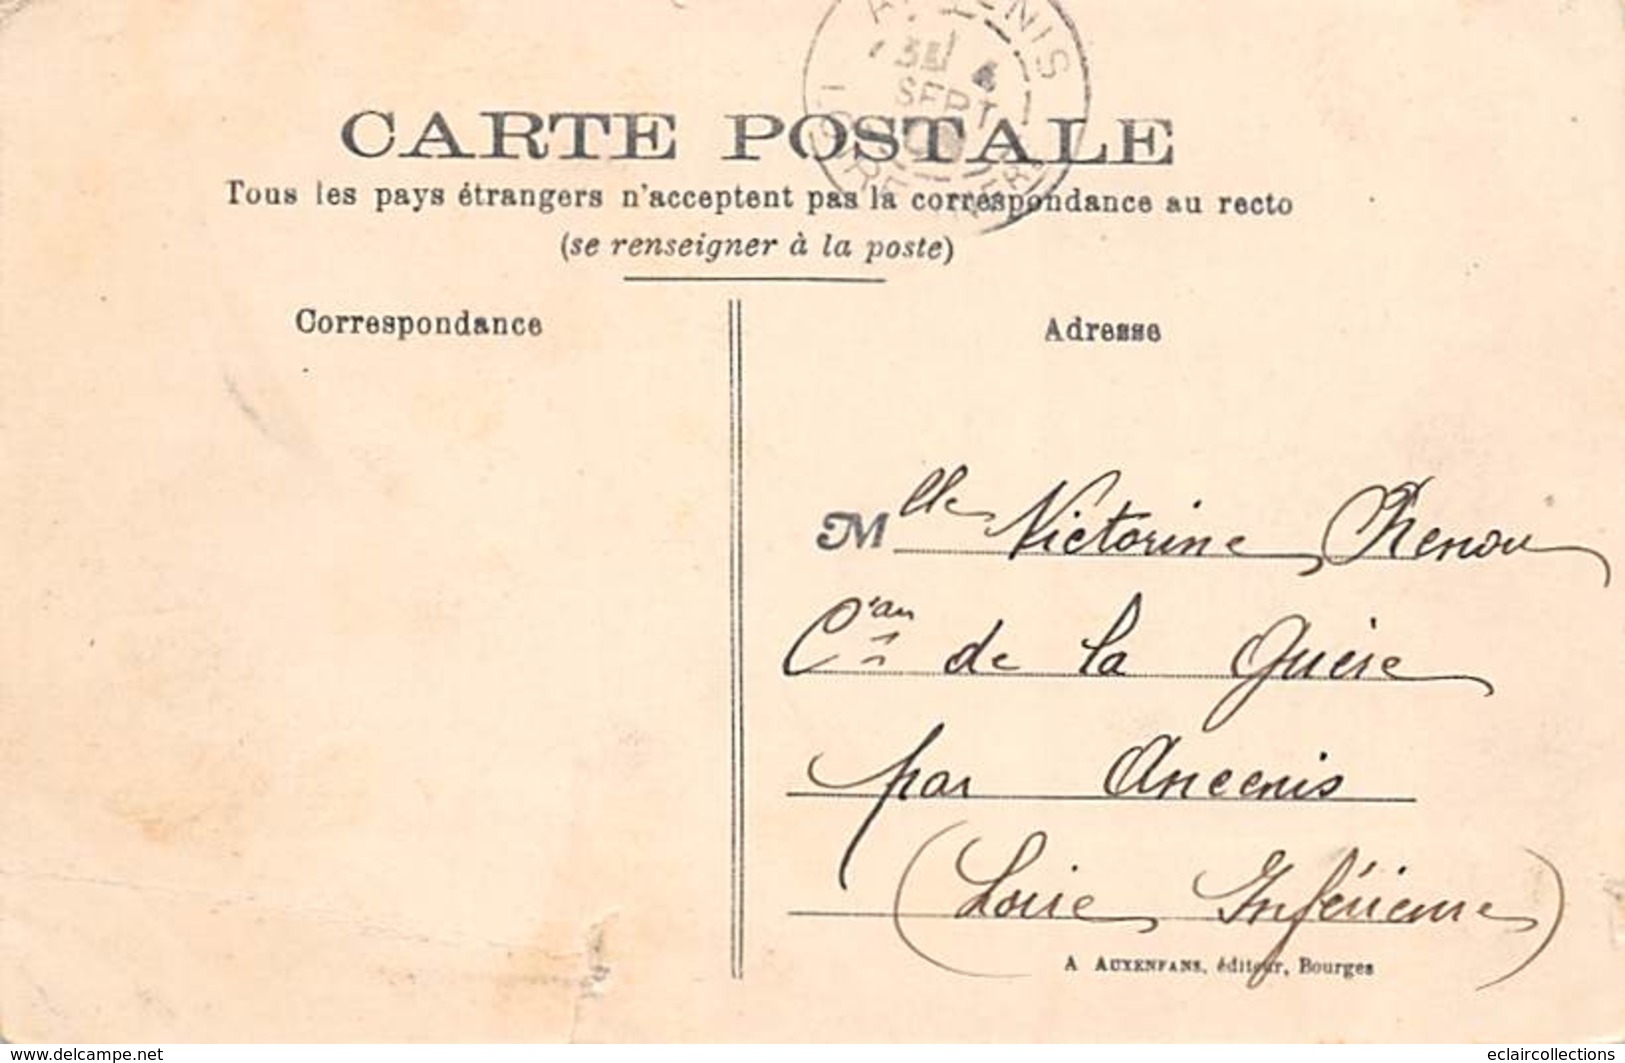 ANCENIS
4
SEPT
LOIRE INFRE
CARTE POSTALE
Tous les pays étrangers n'acceptent pas la correspondance au recto
(se renseigner à la poste)
Correspondance
Adresse
Mlle Victorine Renou
Cian de la Guère
par Ancenis
(Loire Inférieure)
A AUXENFANS, éditeur, Bourges
www.delcampe.net
eclaircollections